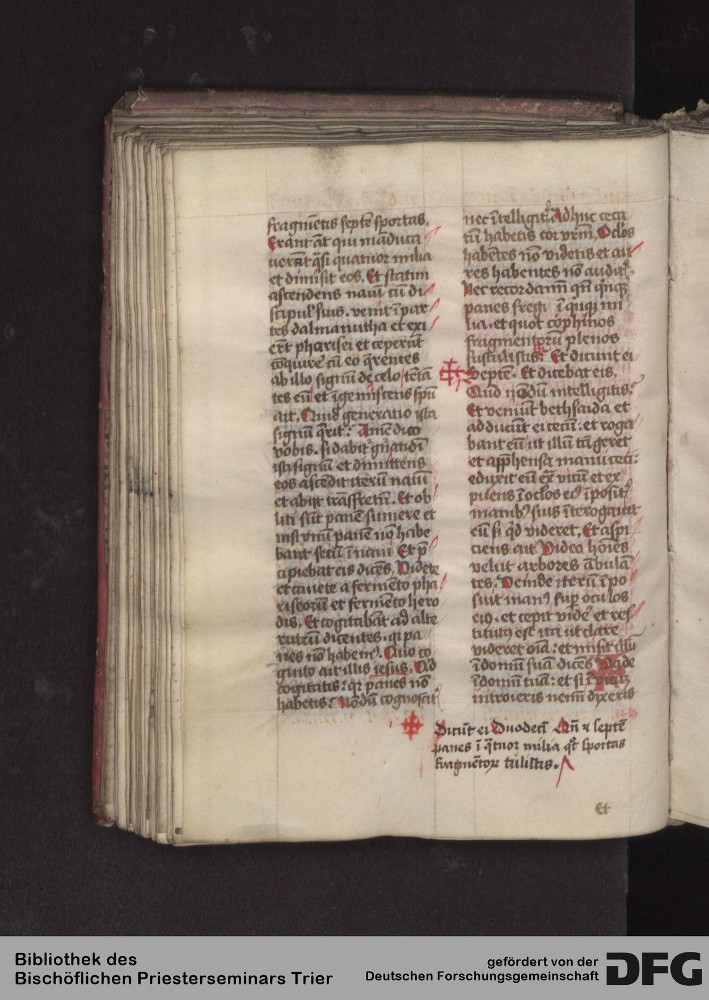 fragmētis septē sportas.
Erant āt qui māduca
uerāt q̄si quatuor milia
et dimisit eos. Et statim
ascendens nauī cū di
scipulˀ suis. venit ī par
tes dalmanutha et exi
erūt pharisei et ceperūt
cōquirē cū eo q̄rentes
ab illo signū de celo tētā
tes eū et īgemiscens spū
ait. Quid generatio ista
signū q̄rit? Amē dico
vobis. si dabitˀ gn̄ationi
isti signū et dimittens
eos ascēdit iterū nauī
et abijt trāsfretū. Et ob
liti sūt panē sumere et
nisi vnū panē nō habe
bant secū ī naui Et p̄
cipiebat eis dicēs. Videte
et cauete a fermēto pha
riseorū et fermēto hero
dis. Et cogitabāt ad alte
rutrū dicentes. qr pa
nes nō habemꝰ. Quo co
gnito ait illis iesus. Qd
cogitatis: qr panes nō
habetis? Nōdū cognoscit
nec ītelligitˀ Adhuc ceca
tū habetis cor vr̄m. Oclos
habētes nō videtis et au
res habentes nō auditˀ.
Nec recordamī qn̄ qnqꝫ
panes fregi ī qnqꝫ mi
lia. et quot cophinos
fragmentorū plenos
sustulistis? Et dicunt ei
Septē. Et dicebat eis.
Quō nōdū intelligitis?
Et veniūt bethsaida et
adducūt ei cecū: et roga
bant eū ut illū tāgeret
et app̄hensa manu ceci:
eduxit eū ext̄ vicū et ex
puens ī oclos eiꝰ īpositˀ
manibꝰ suis īterogauit
eū si qd videret. Et aspi
ciens ait Video hoīes
velut arbores ābulā
tes. Deinde iterū īpo
suit manꝰ sup oculos
eiꝰ. et cepit vidē et res
titutꝰ est ita ut clare
videret oīa: et misit illū
ī domū suā dicēs Vade
ī domū tuā: et si ī vicū
introieris nemī dixeris
Dicūt ei Duodecī Qn̄ ⁊ septē
panes ī q̄tuor milia qt̄ sportas
fragmētoꝝ tulistis.
Et
Bibliothek des
Bischöflichen Priesterseminars Trier
gefördert von der
Deutschen Forschungsgemeinschaft
DFG